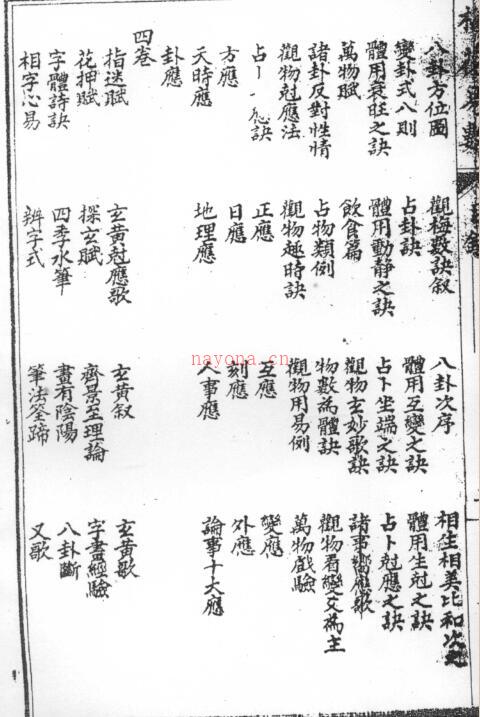 八卦方位圖 觀梅數訣叙 八卦次序 相生相美比和次
變卦式八則 占卦訣 體用互變之訣 體用生尅之訣
體用衰旺之訣 體用動靜之訣 占卜坐端之訣 占卜尅應之訣
萬物賦 飲食篇 觀物玄妙歌訣 諸事響應歌
諸卦反對性情 占物類例 物數為體訣 觀物看變爻為主
觀物尅應法 觀物趣時訣 觀物用易例 萬物戲驗
占訣 正應 互應 變應
方應 日應 刻應 外應
天時應 地理應 人事應 論事十大應
卦應
四卷
指迷賦 玄黃尅應歌 玄黃叙 玄黃歌
花押賦 探玄賦 齊景至理論 字畫經驗
字體詩訣 四季水筆 畫有陰陽 八卦斷
相字心易 辨字式 筆法筌蹄 又歌
nayona.cn